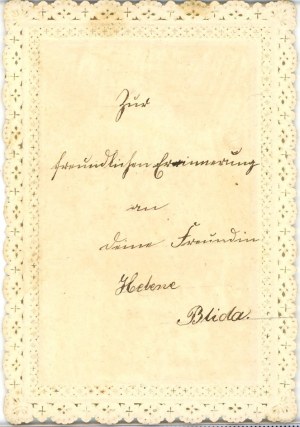 Zur
freundlichen Erinnerung
an
deine Freundin
Helene
Blida.